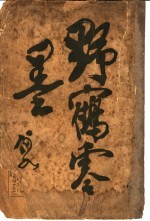 野鶴零
墨